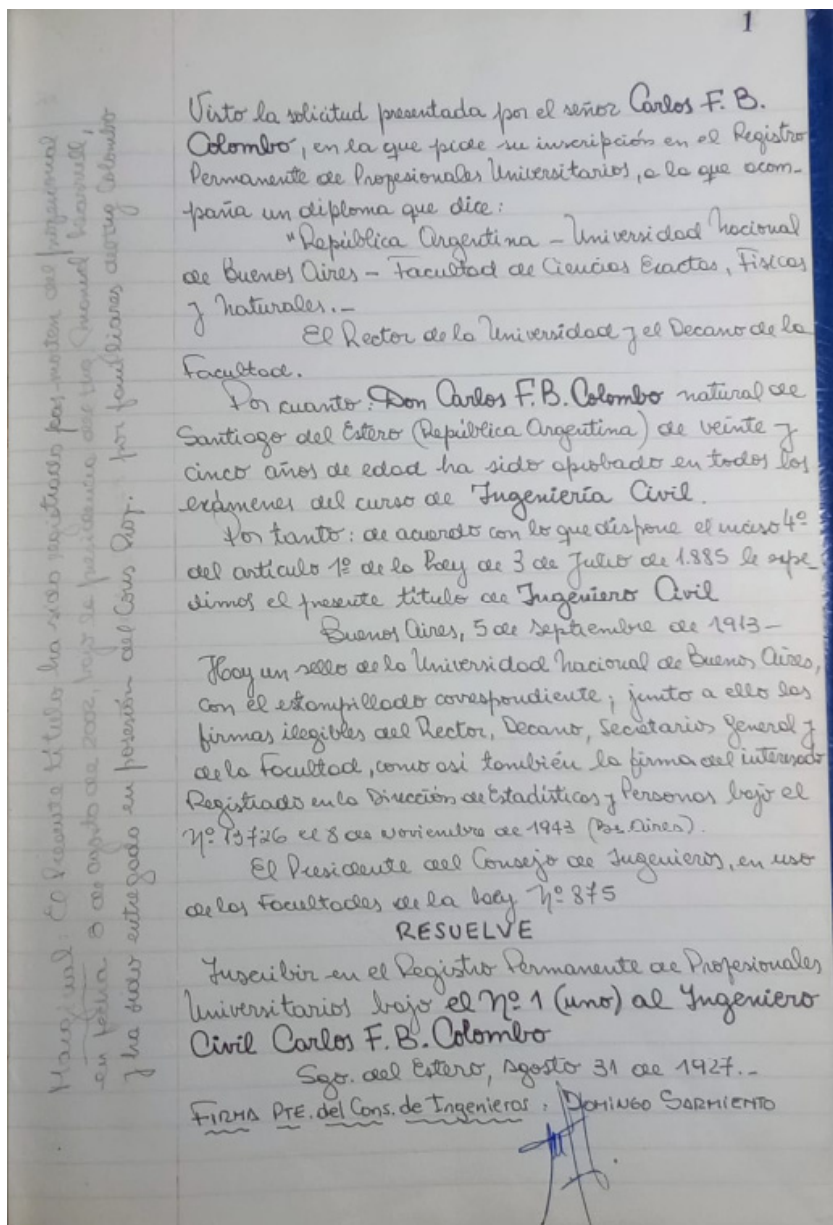 1
Visto la solicitud presentada por el señor Carlos F. B.
Colombo, en la que pide su inscripción en el Registro
Permanente de Profesionales Universitarios, a la que acom-
paña un diploma que dice:
"República Argentina - Universidad Nacional
de Buenos Aires - Facultad de Ciencias Exactas, Físicas
y Naturales.-
El Rector de la Universidad y el Decano de la
Facultad.
Por cuanto: Don Carlos F.B. Colombo natural de
Santiago del Estero (República Argentina) de veinte y
cinco años de edad ha sido aprobado en todos los
exámenes del curso de Ingeniería Civil.
Por tanto: de acuerdo con lo que dispone el inciso 4º
del artículo 1º de la Ley de 3 de Julio de 1.885 le expe-
dimos el presente título de Ingeniero Civil
Buenos Aires, 5 de septiembre de 1913-
Hay un sello de la Universidad Nacional de Buenos Aires,
con el estampillado correspondiente; junto a ello las
firmas ilegibles del Rector, Decano, Secretario General y
de la Facultad, como así también la firma del interesado
Registrado en la Dirección de Estadísticas y Personas bajo el
Nº 13726 el 8 de noviembre de 1943 (Bs. Aires).
El Presidente del Consejo de Ingenieros, en uso
de las Facultades de la Ley Nº 875
RESUELVE
Inscribir en el Registro Permanente de Profesionales
Universitarios bajo el Nº 1 (uno) al Ingeniero
Civil Carlos F. B. Colombo
Sgo. del Estero, Agosto 31 de 1927.-
FIRMA PTE. del Cons. de Ingenieros: DOMINGO SARMIENTO
Marginal: El Presente título ha sido registrado pos-morten del profesional
en fecha 8 de agosto de 2002, bajo la presidencia del Ing Manuel
y ha sido entregado en posesión del Cons Prof. por familiares del Ing Colombo